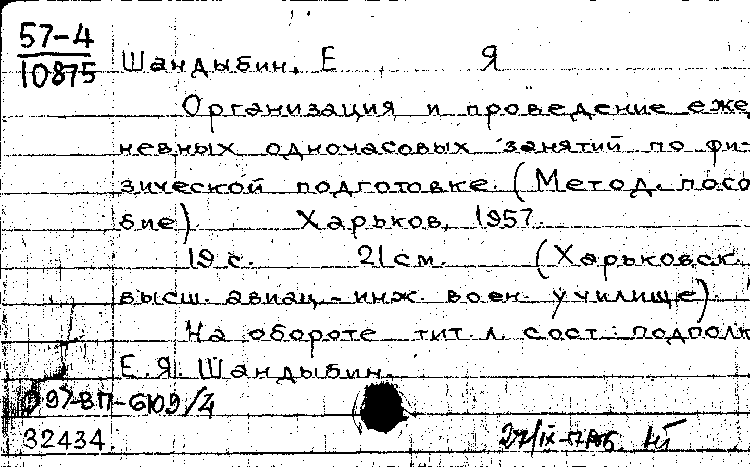 57-4
10875
Шандыбин, Е Я
Организация и проведение еже
невных одночасовых занятий по фи-
зической подготовке. (Метод. посо
бие). Харьков, 1957.
19 с. 21 см. (Харьковск.
высш. авиац.-инж. воен. училище).
На обороте тит. л. сост.: подполк
Е.Я. Шандыбин.
97-8П-6109/4
32434.
27/IX